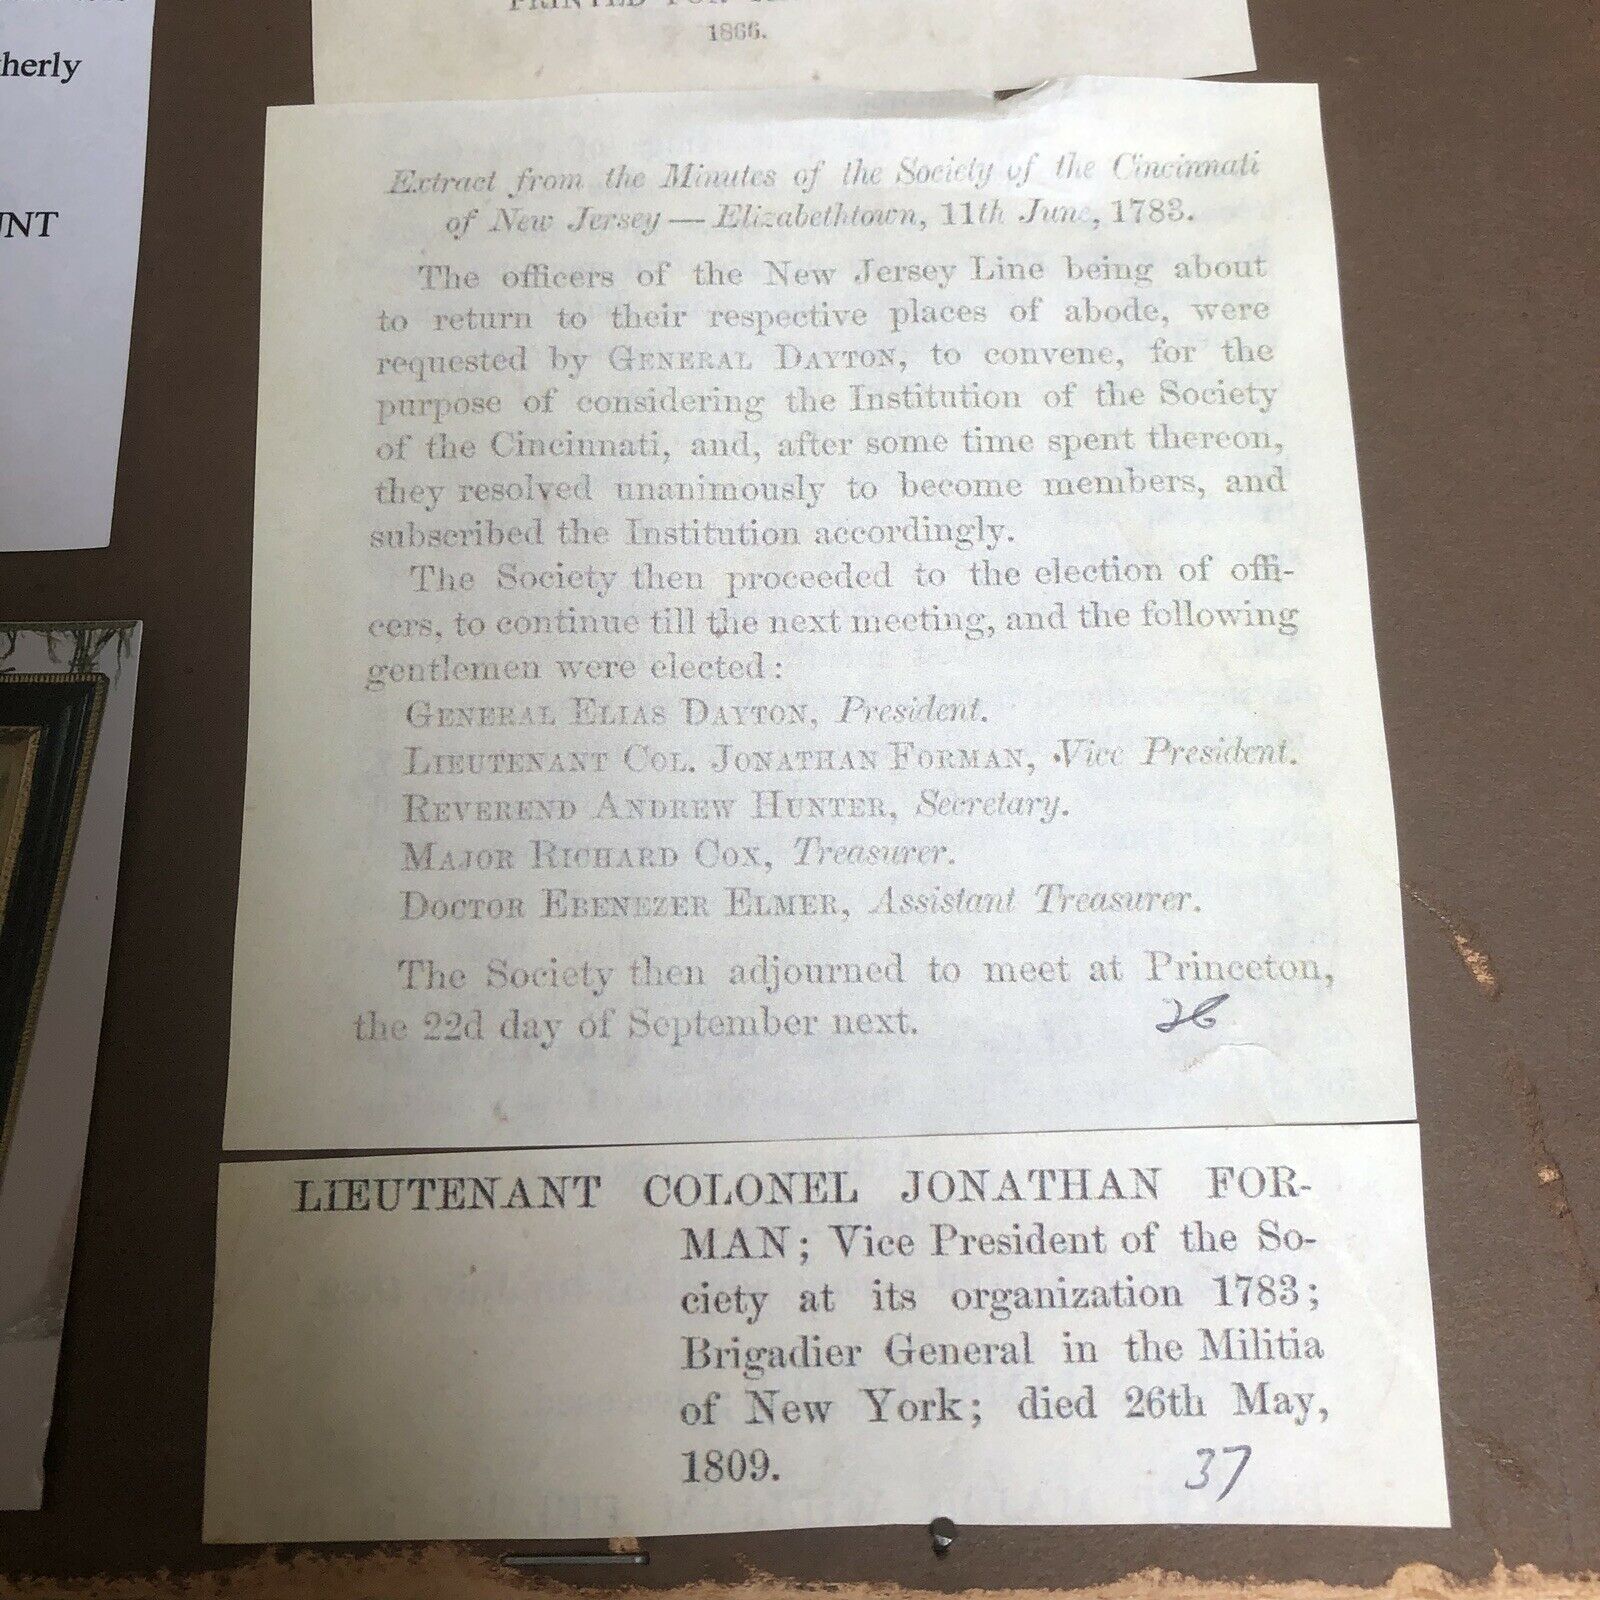 herly
UNT
1866.
Extract from the Minutes of the Society of the Cincinnati
of New Jersey — Elizabethtown, 11th June, 1783.
The officers of the New Jersey Line being about
to return to their respective places of abode, were
requested by GENERAL DAYTON, to convene, for the
purpose of considering the Institution of the Society
of the Cincinnati, and, after some time spent thereon,
they resolved unanimously to become members, and
subscribed the Institution accordingly.
The Society then proceeded to the election of offi-
cers, to continue till the next meeting, and the following
gentlemen were elected:
GENERAL ELIAS DAYTON, President.
LIEUTENANT COL. JONATHAN FORMAN, Vice President.
REVEREND ANDREW HUNTER, Secretary.
MAJOR RICHARD COX, Treasurer.
DOCTOR EBENEZER ELMER, Assistant Treasurer.
The Society then adjourned to meet at Princeton,
the 22d day of September next.
26
LIEUTENANT COLONEL JONATHAN FOR-
MAN; Vice President of the So-
ciety at its organization 1783;
Brigadier General in the Militia
of New York; died 26th May,
1809.
37